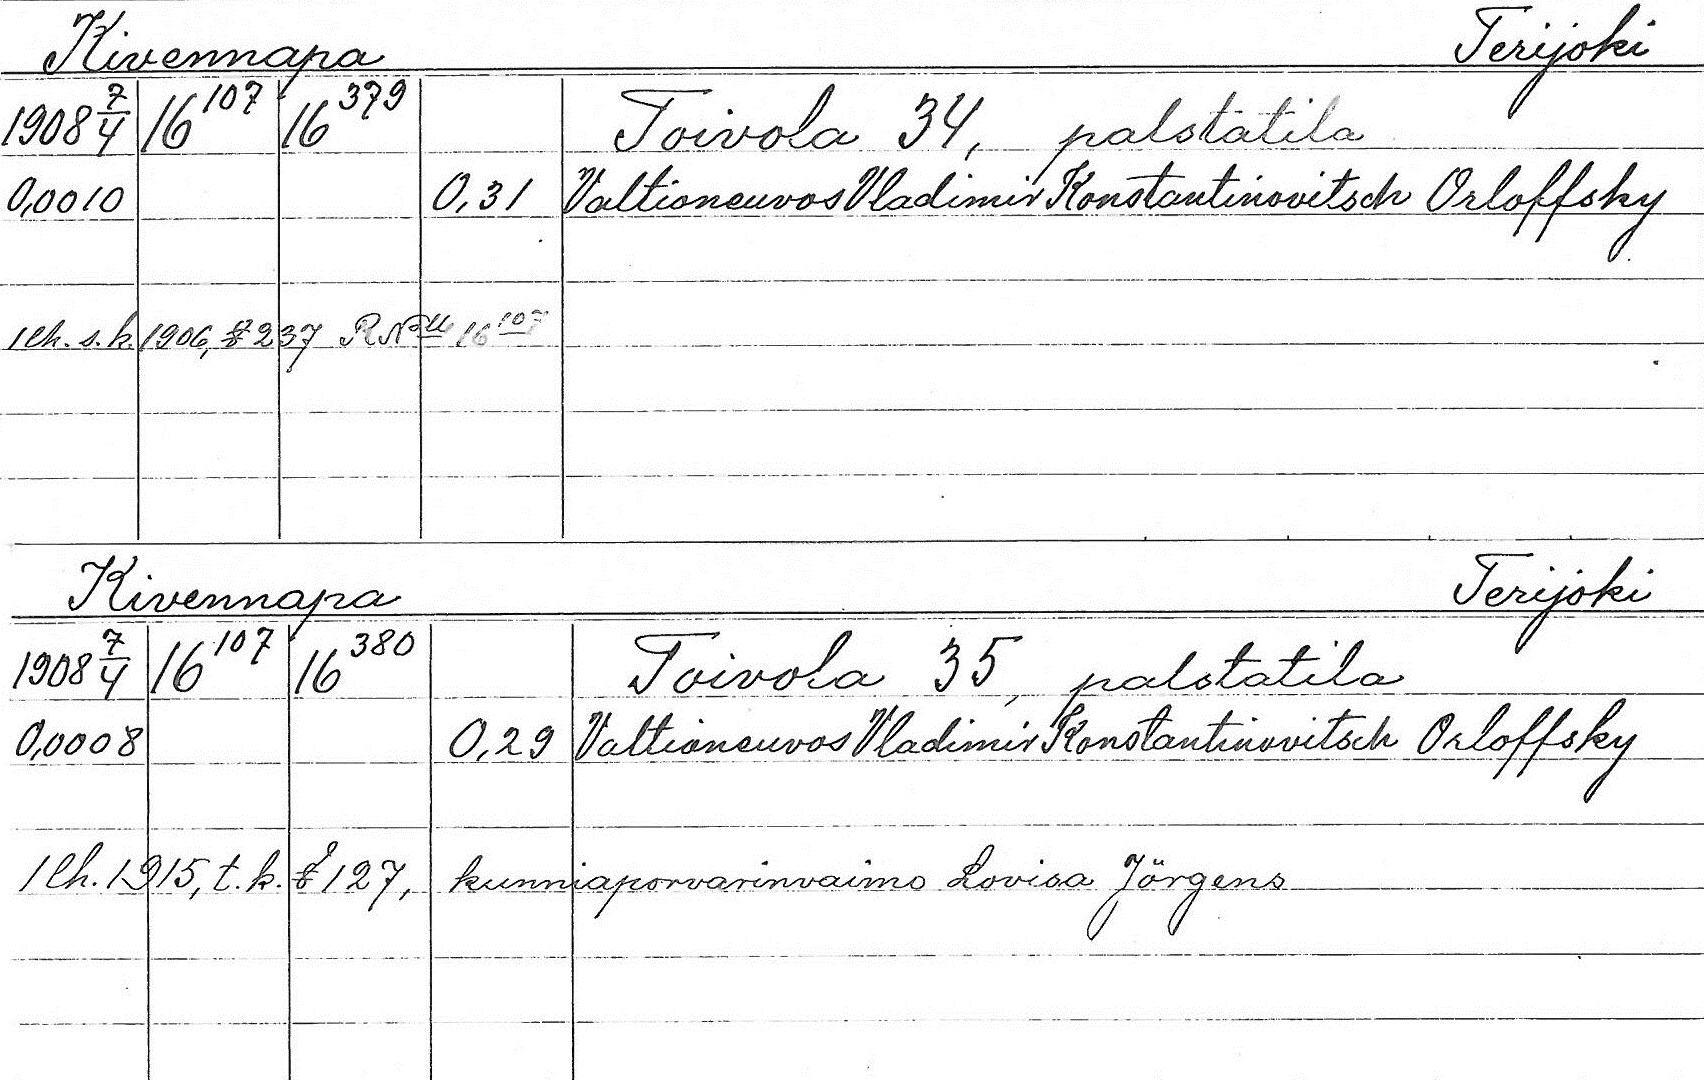 Kivennapa Terijoki
1908 7/4 16^107 16^379 Toivola 34, palstatila
0,0010 0,31 Valtioneuvos Vladimir Konstantinovitsch Orloffsky
1 lh. s.k. 1906, § 237 R№ll 16^107
Kivennapa Terijoki
1908 7/4 16^107 16^380 Toivola 35, palstatila
0,0008 0,29 Valtioneuvos Vladimir Konstantinovitsch Orloffsky
1 lh. 1915, t.k. § 127, kunniaporvarinvaimo Lovisa Jörgens